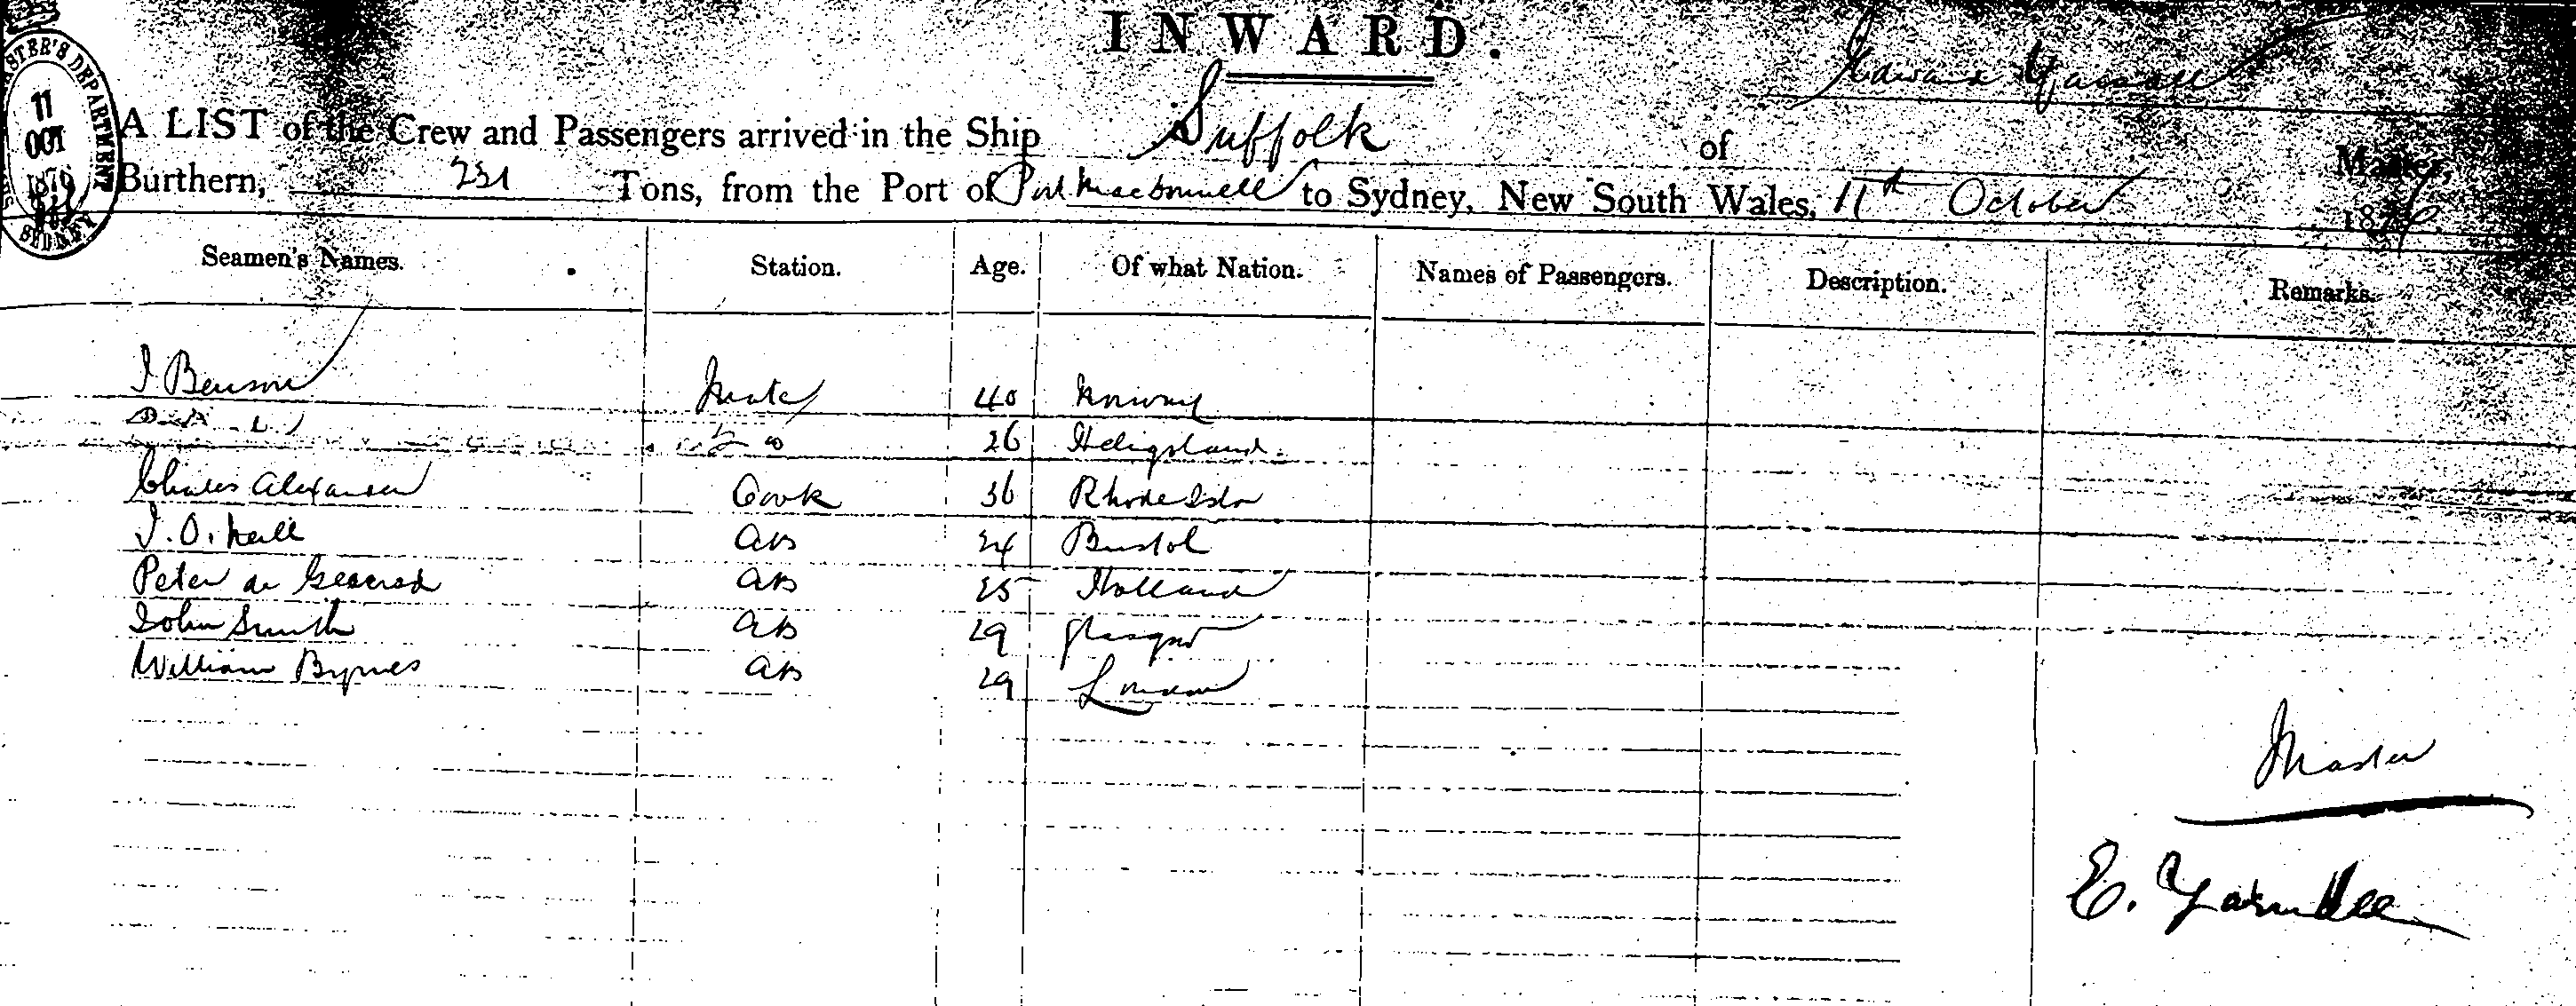 INWARD.
Edward
A LIST of the Crew and Passengers arrived in the Ship Suffolk of Master,
Burthern, 231 Tons, from the Port of Port MacDonnell to Sydney, New South Wales, 11th October 1879
MASTER'S DEPARTMENT
11
OCT
1879
SYDNEY
Seamen's Names. Station. Age. Of what Nation. Names of Passengers. Description. Remarks.
I Benson Mate 40 Norway
26 Heligoland.
Charles Alexander Cook 36 Rhode Isld
J. O. Neill AB 24 Bristol
Peter de AB 25 Holland
John Smith AB 29 Glasgow
William Byrnes AB 29 London
Master
E. Yarndlee